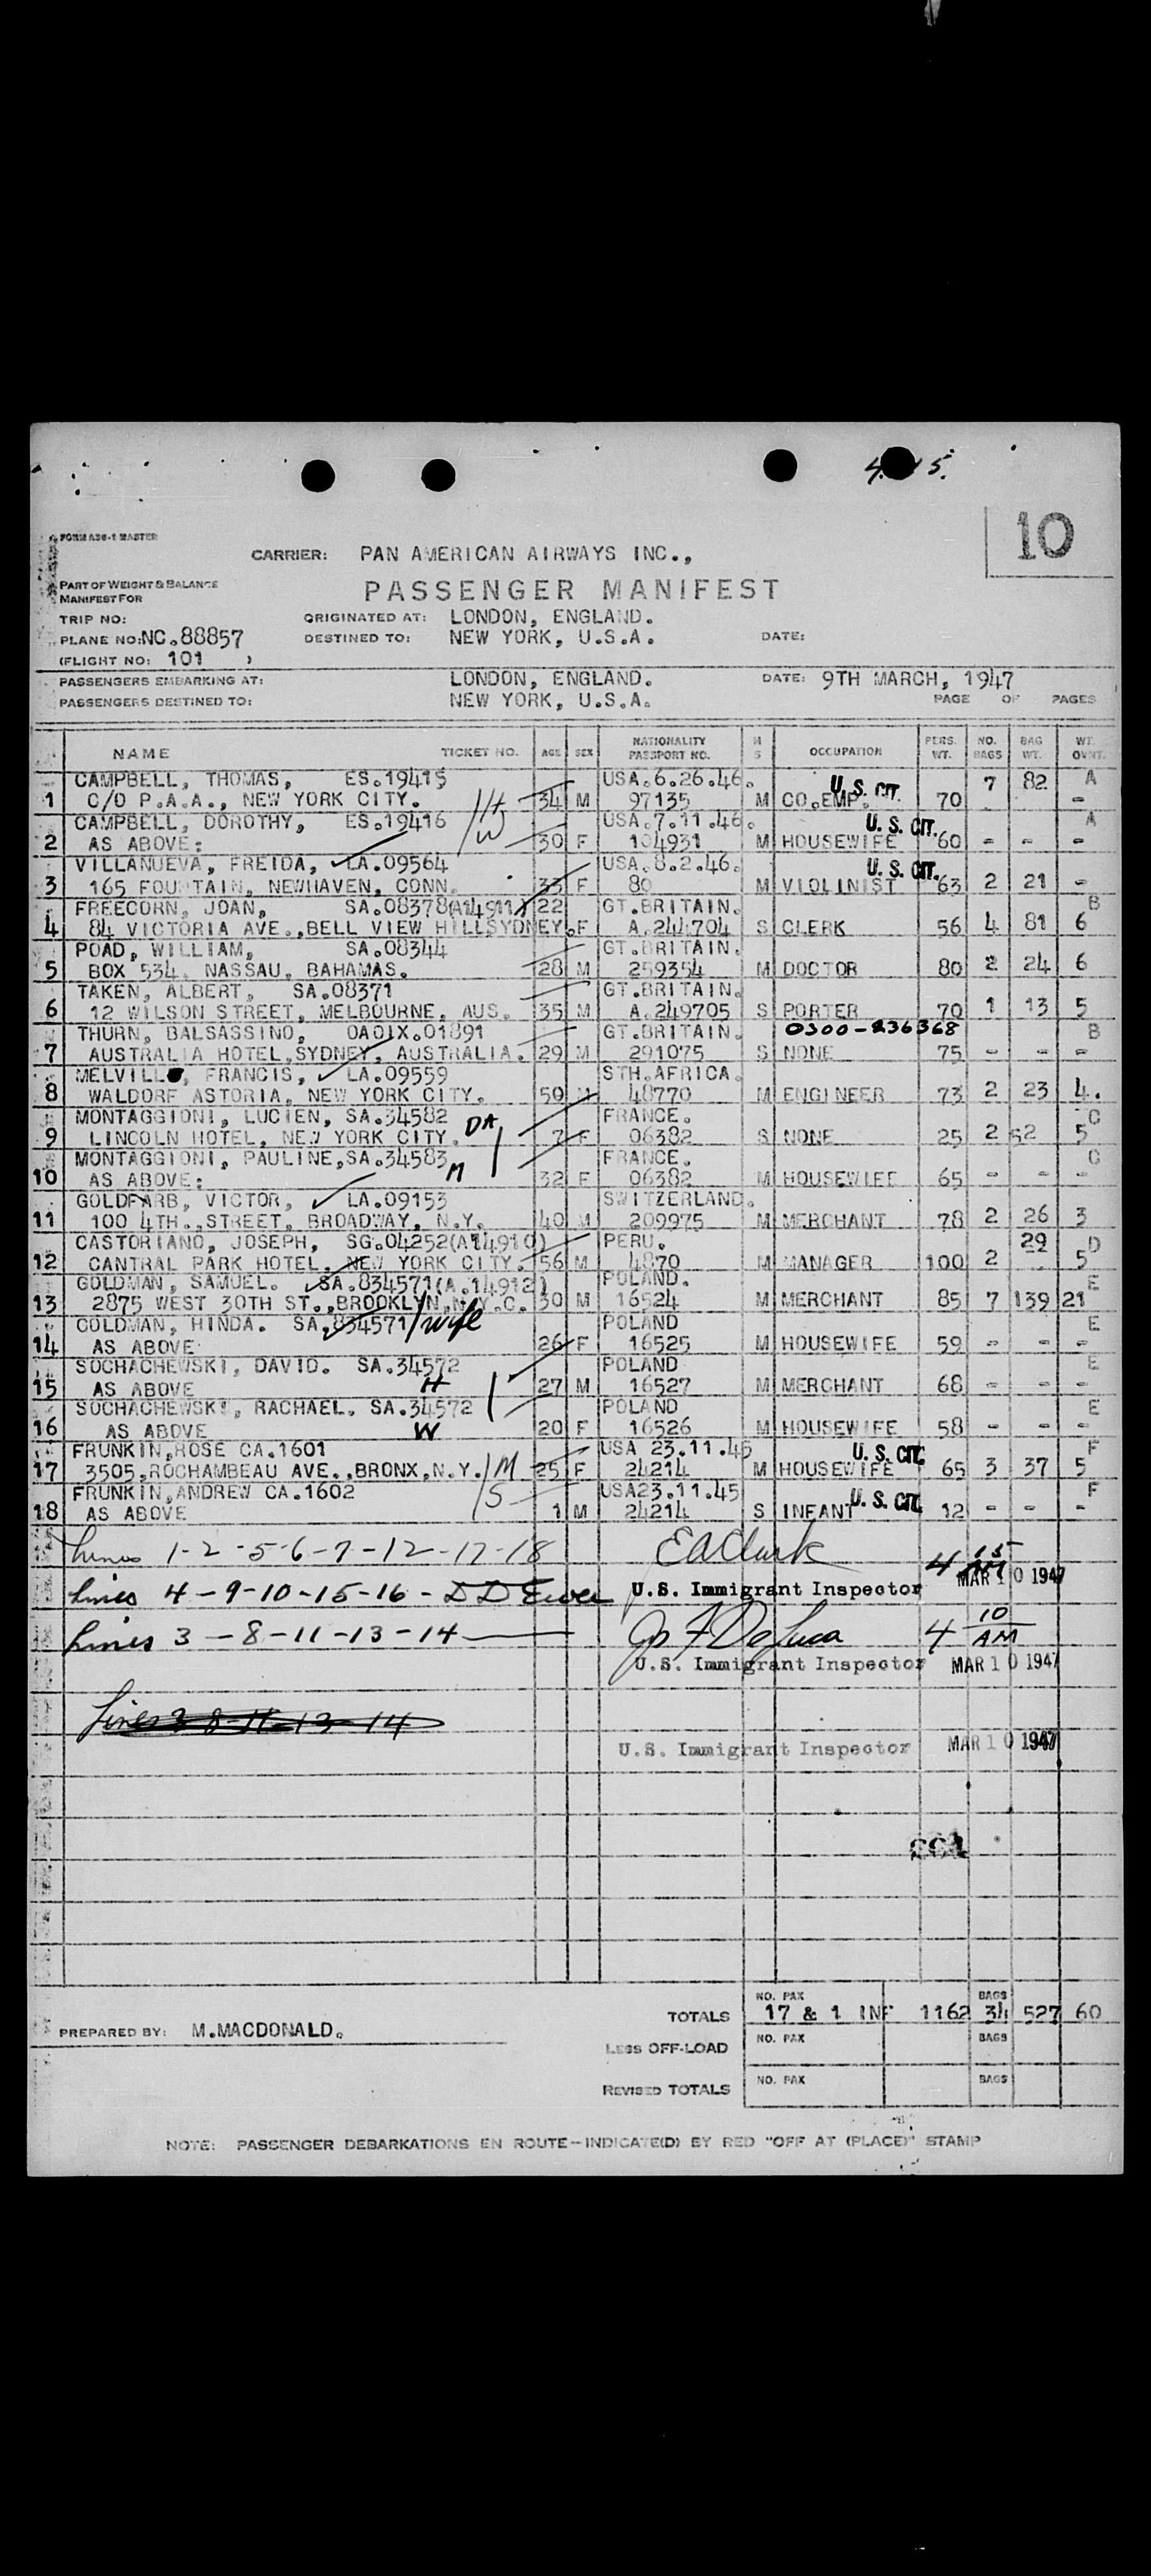 4. 15.
10
FORM A36-1 MASTER
CARRIER: PAN AMERICAN AIRWAYS INC.,
PART OF WEIGHT & BALANCE
MANIFEST FOR
PASSENGER MANIFEST
TRIP NO: ORIGINATED AT: LONDON, ENGLAND.
PLANE NO: NC.88857 DESTINED TO: NEW YORK, U.S.A. DATE:
(FLIGHT NO: 101 )
PASSENGERS EMBARKING AT: LONDON, ENGLAND. DATE: 9TH MARCH, 1947
PASSENGERS DESTINED TO: NEW YORK, U.S.A. PAGE OF PAGES
NAME TICKET NO. AGE SEX NATIONALITY PASSPORT NO. M S OCCUPATION PERS. WT. NO. BAGS BAG WT. WT. OVNT.
CAMPBELL, THOMAS, ES.19415 USA.6.26.46. U.S. CIT. 7 82 A
1 C/O P.A.A., NEW YORK CITY. H 34 M 97135 M CO.EMP. 70 -
CAMPBELL, DOROTHY, ES.19416 W USA.7.11.46. U.S. CIT. A
2 AS ABOVE: 30 F 104931 M HOUSEWIFE 60 - - -
VILLANUEVA, FREIDA, LA.09564 USA.8.2.46. U.S. CIT.
3 165 FOUNTAIN, NEWHAVEN, CONN. 33 F 80 M VIOLINIST 63 2 21 -
FREECORN, JOAN, SA.08378(A14911) 22 GT.BRITAIN. B
4 84 VICTORIA AVE.,BELL VIEW HILLSYDNEY. F A.244704 S CLERK 56 4 81 6
POAD, WILLIAM, SA.08344 GT.BRITAIN.
5 BOX 534, NASSAU, BAHAMAS. 28 M 259354 M DOCTOR 80 2 24 6
TAKEN, ALBERT, SA.08371 GT.BRITAIN.
6 12 WILSON STREET, MELBOURNE, AUS. 35 M A.249705 S PORTER 70 1 13 5
THURN, BALSASSINO, OAOIX.01891 GT.BRITAIN. 0300-236368 B
7 AUSTRALIA HOTEL,SYDNEY, AUSTRALIA. 29 M 291075 S NONE 75 - - -
MELVILL, FRANCIS, LA.09559 STH.AFRICA.
8 WALDORF ASTORIA, NEW YORK CITY. 50 M 48770 M ENGINEER 73 2 23 4.
MONTAGGIONI, LUCIEN, SA.34582 DA FRANCE. C
9 LINCOLN HOTEL, NEW YORK CITY. 7 F 06382 S NONE 25 2 52 5
MONTAGGIONI, PAULINE,SA.34583 M FRANCE. C
10 AS ABOVE: 32 F 06382 M HOUSEWIFE 65 - - -
GOLDFARB, VICTOR, LA.09153 SWITZERLAND.
11 100 4TH.,STREET, BROADWAY, N.Y. 40 M 209975 M MERCHANT 78 2 26 3
CASTORIANO, JOSEPH, SG.04252(A14910) PERU. 29 D
12 CANTRAL PARK HOTEL, NEW YORK CITY. 56 M 4870 M MANAGER 100 2 5
GOLDMAN, SAMUEL. SA.834571(A.14912) POLAND. E
13 2875 WEST 30TH ST.,BROOKLYN,N.Y.C. 30 M 16524 M MERCHANT 85 7 139 21
GOLDMAN, HINDA. SA.834571 wife POLAND E
14 AS ABOVE 26 F 16525 M HOUSEWIFE 59 - - -
SOCHACHEWSKI, DAVID. SA.34572 POLAND E
15 AS ABOVE H 27 M 16527 M MERCHANT 68 - - -
SOCHACHEWSKI, RACHAEL. SA.34572 POLAND E
16 AS ABOVE W 20 F 16526 M HOUSEWIFE 58 - - -
FRUNKIN,ROSE CA.1601 USA 23.11.45 U.S. CIT. F
17 3505,ROCHAMBEAU AVE.,BRONX,N.Y. M 25 F 24214 M HOUSEWIFE 65 3 37 5
FRUNKIN,ANDREW CA.1602 S USA23.11.45 U.S. CIT. F
18 AS ABOVE 1 M 24214 S INFANT 12 - - -
Lines 1-2-5-6-7-12-17-18 EAClark 4 15 AM
Lines 4-9-10-15-16- U.S. Immigrant Inspector MAR 10 1947
Lines 3-8-11-13-14 4 10 AM
U.S. Immigrant Inspector MAR 10 1947
Lines 3-8-11-13-14
U.S. Immigrant Inspector MAR 10 1947
TOTALS NO. PAX 17 & 1 INF 1162 BAGS 34 527 60
PREPARED BY: M.MACDONALD.
LESS OFF-LOAD NO. PAX BAGS
REVISED TOTALS NO. PAX BAGS
NOTE: PASSENGER DEBARKATIONS EN ROUTE-INDICATE(D) BY RED "OFF AT (PLACE)" STAMP